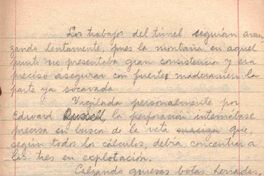 Los trabajos del túnel seguían avan-
zando lentamente, pues la montaña en aquel
punto no presentaba gran consistencia y era
preciso asegurar con fuertes maderámenes la
parte ya socavada.
Vigilada personalmente por
Edward Russell la perforación internábase
precisa en busca de la veta que
según todo los cálculos, debía encontrar a
las tres en explotación.
Calzando gruesas botas herradas,